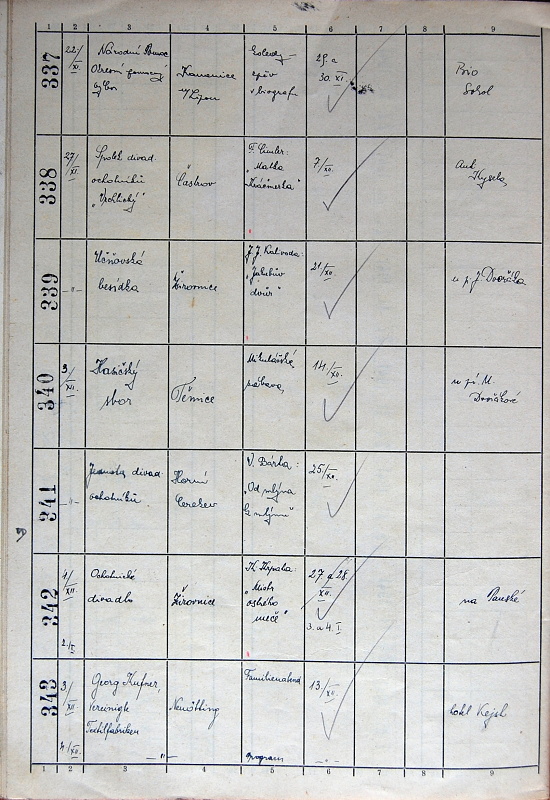 1 2 3 4 5 6 7 8 9
337
22/XI.
Národní Pomoc
Kamenice
n/Lipou
zpěv
v biografu
29. a
30. XI.
Bio
Sokol
338
27/XI.
Spolek divad.
ochotníků
"Vrchlický"
Častrov
Matka
Kráčmerka"
7/XII.
Ant.
Kysela
339
-"-
Učňovská
besídka
Žirovnice
J. J. Kalvoda:
"Jakubův
dvůr"
21/XII.
u p. J. Dvořáka
340
3/XII.
Hasičský
sbor
Těmice
Mikulášská
zábava
14/XII.
u pí M.
Dvořákové
341
-"-
Jednota divad.
ochotníků
Horní
Cerekev
V. Bárta:
"Od mlýna
ke mlýnu"
25/XII.
342
4/XII
2./I.
Ochotnické
divadlo
Žirovnice
"Mistr
ostrého
meče"
27. a 28.
XII.
3. a 4. I.
na Panské
343
3/XII
4./XII.
Georg Kufner,
Vereinigte
Textilfabriken
-"-
Neuötting
Familienabend
program
13/XII.
-"-
hotel Kejst
1 2 3 4 5 6 7 8 9